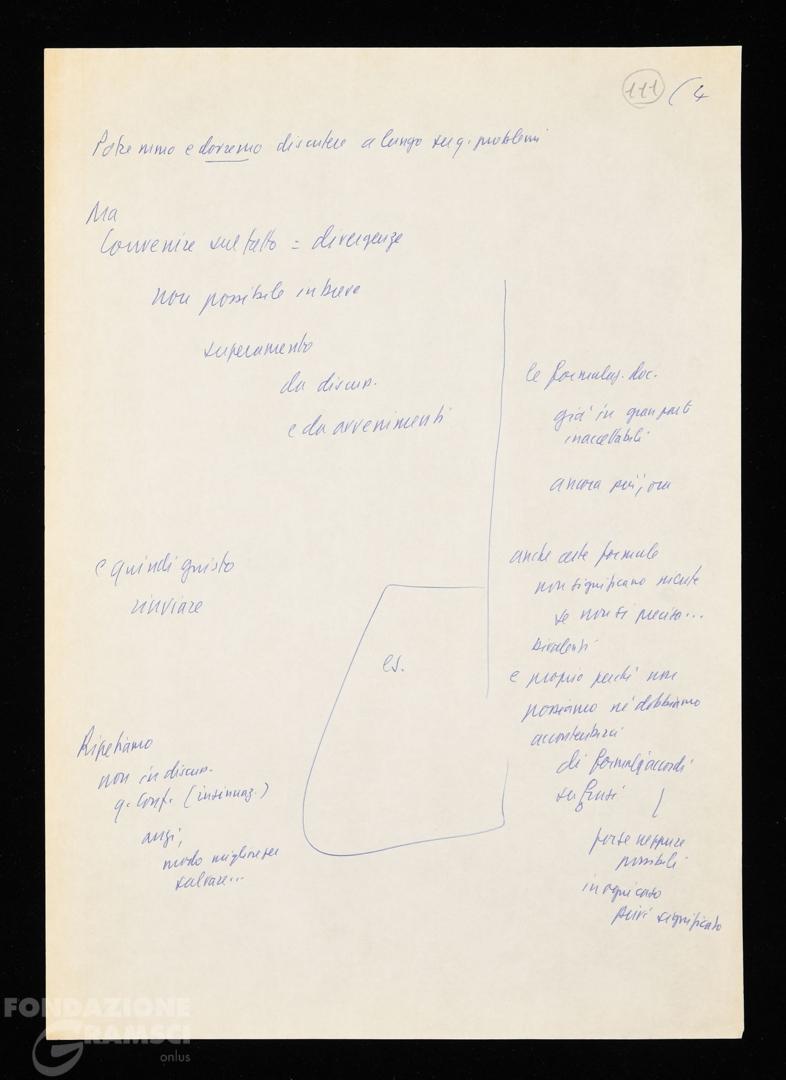 111 (4
Potremmo e dovremo discutere a lungo su q. problemi
Ma
Convenire sul fatto = divergenze
non possibile in breve
superamento
da discus.
e da avvenimenti
e quindi giusto
rinviare
Ripetiamo
non in discus.
q. Conf. (insinuaz.)
anzi,
modo migliore per
salvare...
es.
le formulaz. doc.
già in gran parte
inaccettabili
ancora più, ora
anche certe formule
non significano niente
se non si precisa...
bivalenti
e proprio perché non
possiamo né dobbiamo
accontentarci
di formali accordi
su frasi
forse neppure
possibili
in ogni caso
privi significato
FONDAZIONE
GRAMSCI
onlus